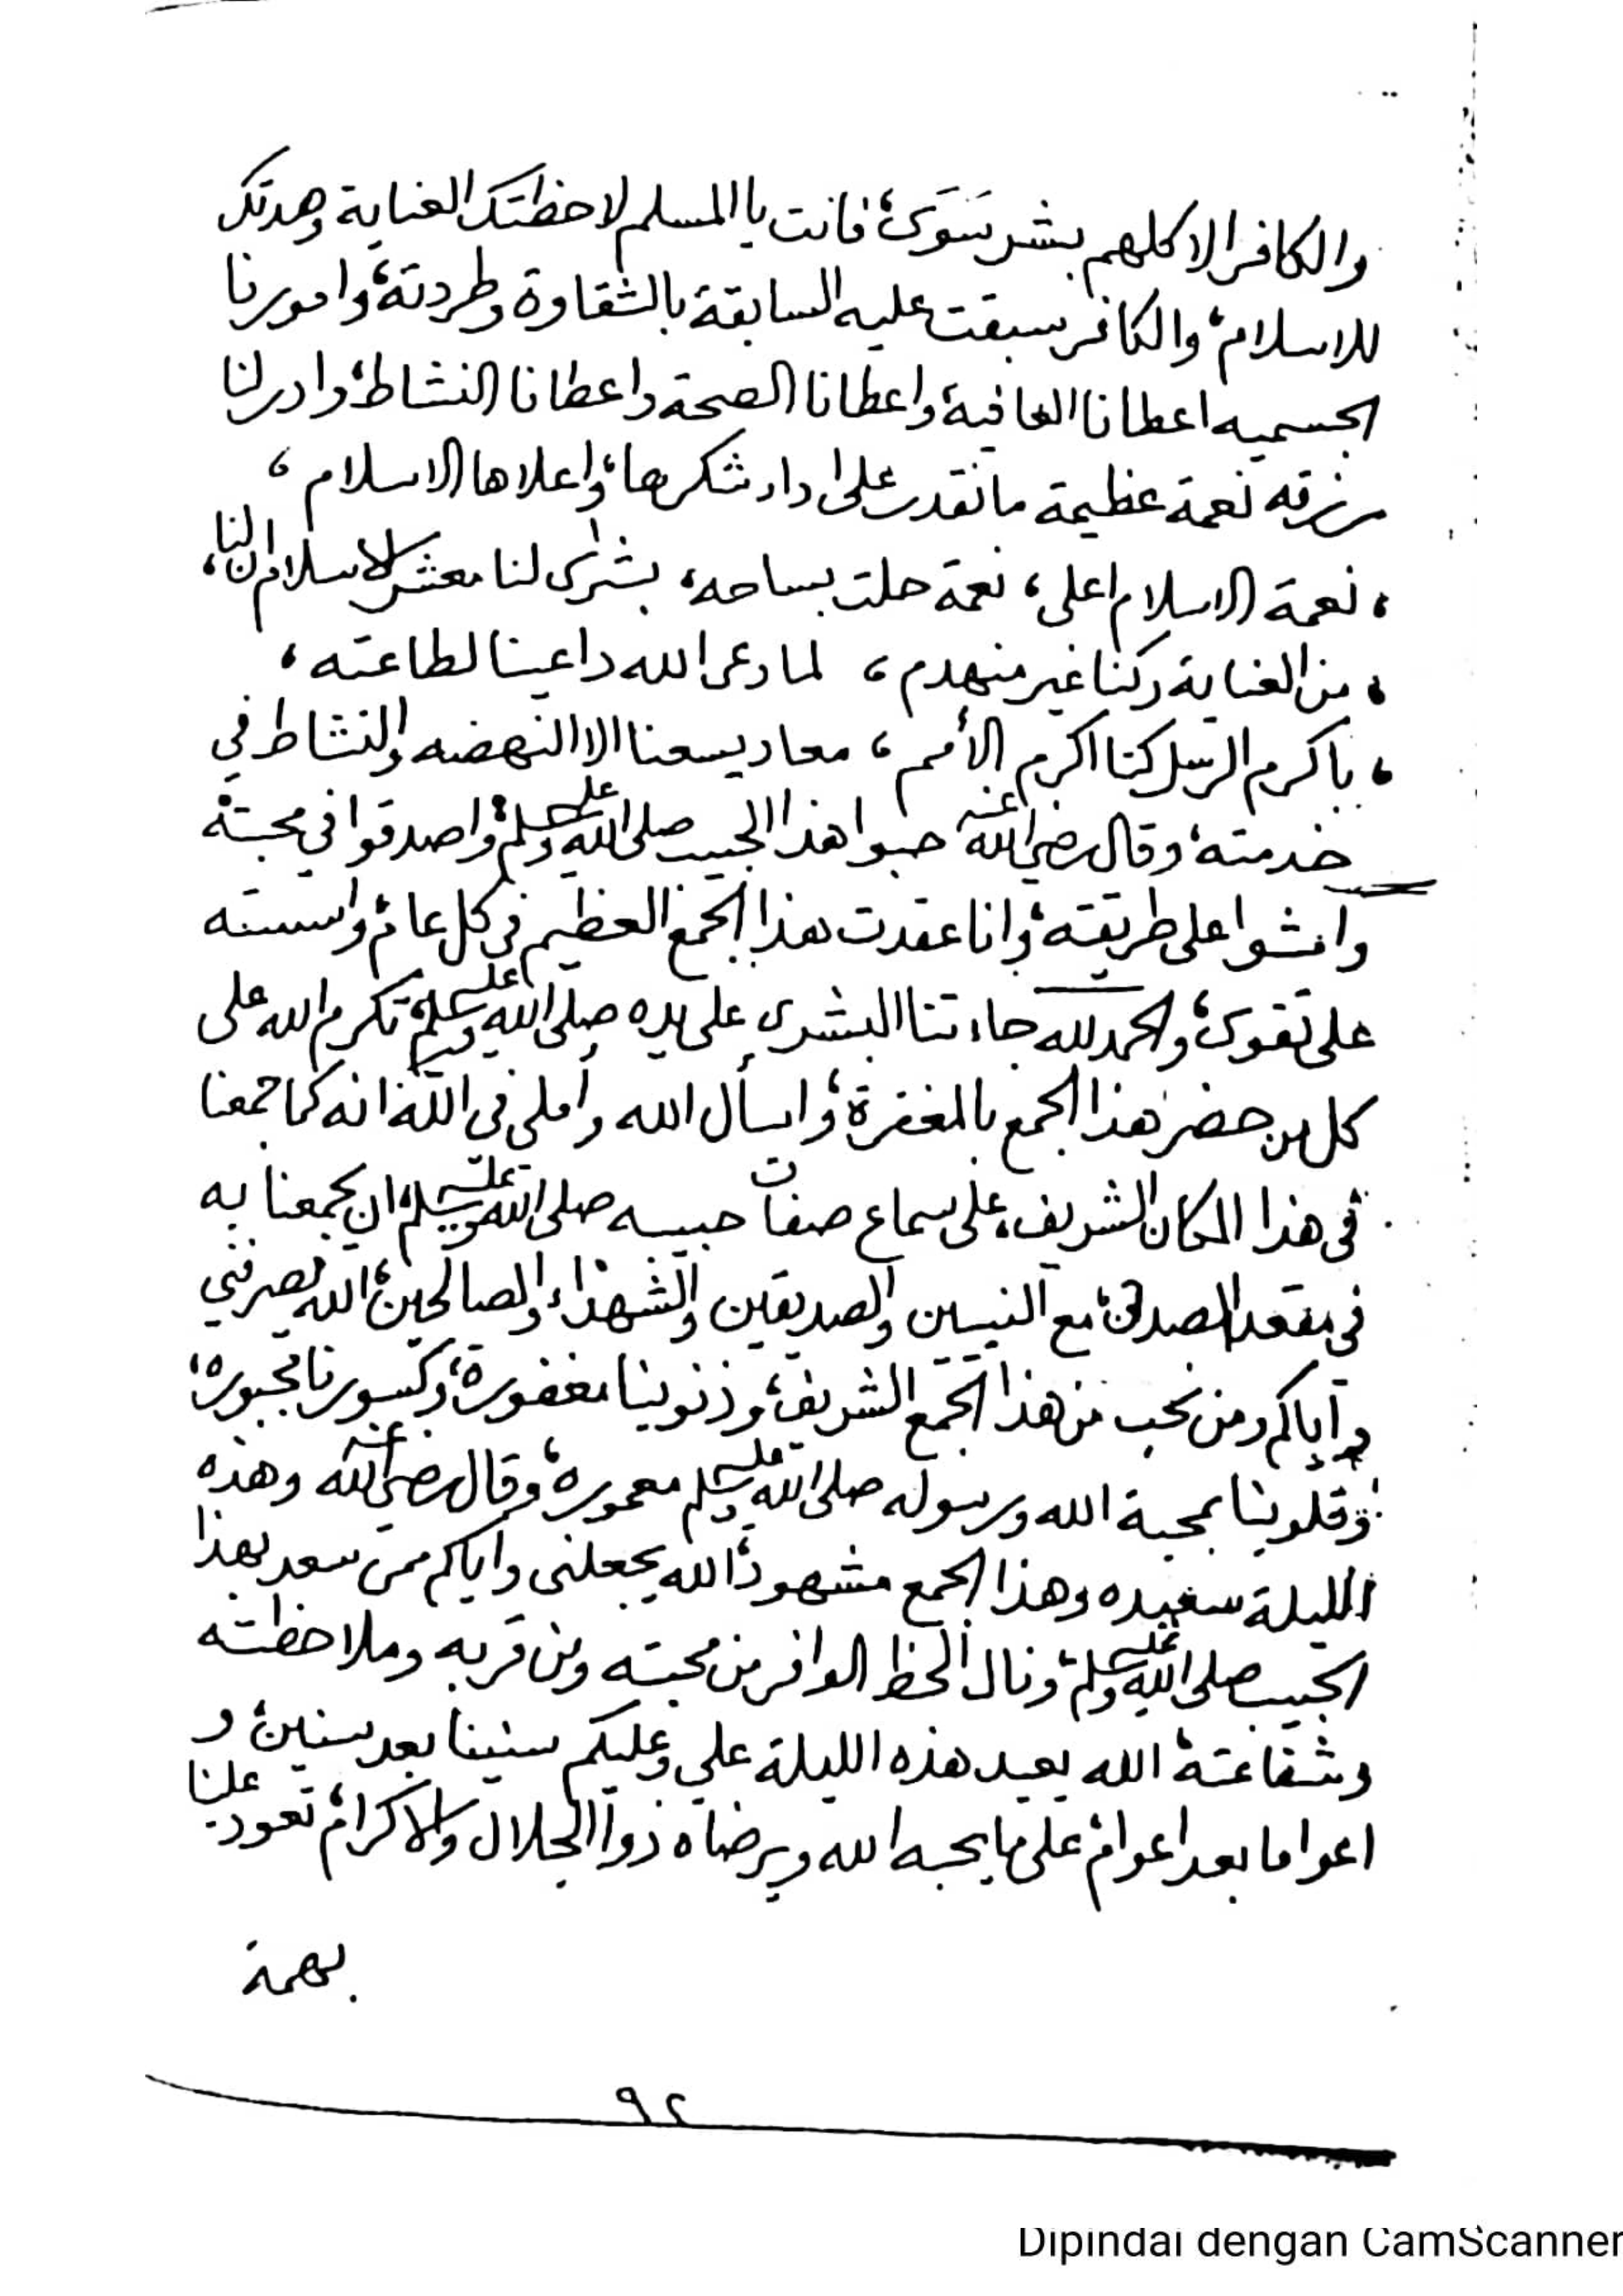 والكافر الا كلهم بشر سَوَى، فانت يا المسلم لاحظتك العناية وهدتك
للاسلام، والكافر سبقت عليه السابقة بالشقاوة وطردته، وامورنا
الجسميه اعطانا العافية، واعطانا الصحة واعطانا النشاط، وادر لنا
رزقه نعمة عظيمة ما نقدر على اداء شكرها، واعلاها الاسلام ،
، نعمة الاسلام اعلى ، نعمة حلت بساحه ، بشرى لنا معشر الاسلام ان لنا ،
، من العناية ركنا غير منهدم ، لما دعى الله داعينا لطاعته ،
، باكرم الرسل كنا اكرم الأمم ، معاد يسعنا الا النهضه والنشاط في
خدمته، وقال رضي الله عنه حبوا هذا الحبيب صلى الله عليه وسلم، واصدقوا في محبته
وامشوا على طريقته، وانا عقدت هذا الجمع العظيم في كل عام، واسسته
على تقوى، والحمد لله جاءتنا البشرى على يده صلى الله عليه وسلم، تكرم الله على
كل من حضر هذا الجمع بالمغفرة، واسأل الله وأملي في الله انه كما جمعنا
في هذا المكان الشريف، على سماع صفات حبيبه صلى الله عليه وسلم، ان يجمعنا به
في مقعد الصدق، مع النبيين والصديقين والشهداء والصالحين، الله يصرفني
وإياكم ومن نحب من هذا الجمع الشريف، وذنوبنا مغفورة، وكسورنا مجبوره،
وقلوبنا بمحبة الله ورسوله صلى الله عليه وسلم معموره، وقال رضي الله عنه وهذه
الليلة سعيده وهذا الجمع مشهود، الله يجعلني واياكم ممن سعد بهذا
الحبيب صلى الله عليه وسلم، ونال الحظ الوافر من محبته ومن قربه وملاحظته
وشفاعته، الله يعيد هذه الليلة علي وعليكم سنينا بعد سنين، و
اعواما بعد اعوام، على ما يحبه الله ويرضاه ذوا الجلال والاكرام، تعود علينا
بهمة
٩٢
Dipindai dengan CamScanner